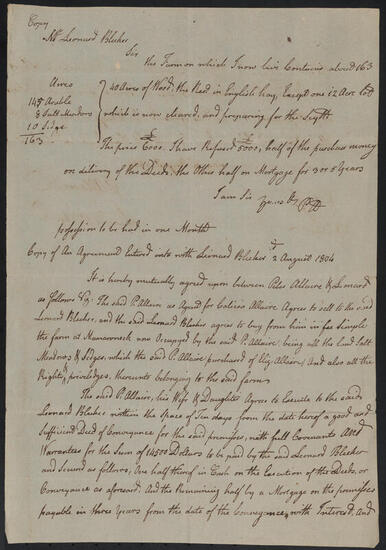 Copy
Mr Leonard Bleeker
Sir
the Farm on which I now live Contains about 163
Acres
145 Arable
8 Salt Meadows
10 Sedge
163
40 Acres of Wood, the Rest in English hay, Except one 12 Acre lot
which is now cleared, and preparing for the Scyth
The price £6000. I have Refused £5000, half of the purchase money
on delivery of the Deeds, the Other half on Mortgage for 3 or 5 Years
I am Sir
yours &c PA
possession to be had in one Month
Copy of An Agreement Entered into with Leonard Bleeker 2d August 1804
It is hereby mutually agreed upon between Peter Allaire & Leonard
as follows Viz: The said P. Allaire as Agent for Calicia Allaire Agrees to sell to the said
Leonard Bleeker, and the said Leonard Bleeker agrees to buy from him in fee simple
the farm at Mamaroneck now Occupyed by the said P. Allaire, being all the Land Salt
Meadows & Sedges, which the said P. Allaire purchased of Allaire, And also all the
Rights, priviledges, thereunto belonging to the said farm
The said P. Allaire, his Wife & Daughter Agree to Execute to the said
Leonard Bleeker within the Space of Ten days from the date hereof a good and
Sufficient Deed of Conveyance for the said premisses, with full Covenants And
Warrantee for the Sum of 14500 Dollars to be paid by the said Leonard Bleeker
and Secured as follows, One half thereof in Cash on the Execution of the Deeds, or
Conveyance as aforesaid. And the Remaining half by a Mortgage on the premisses
payable in three Years from the date of the Conveyance, with Interest, and